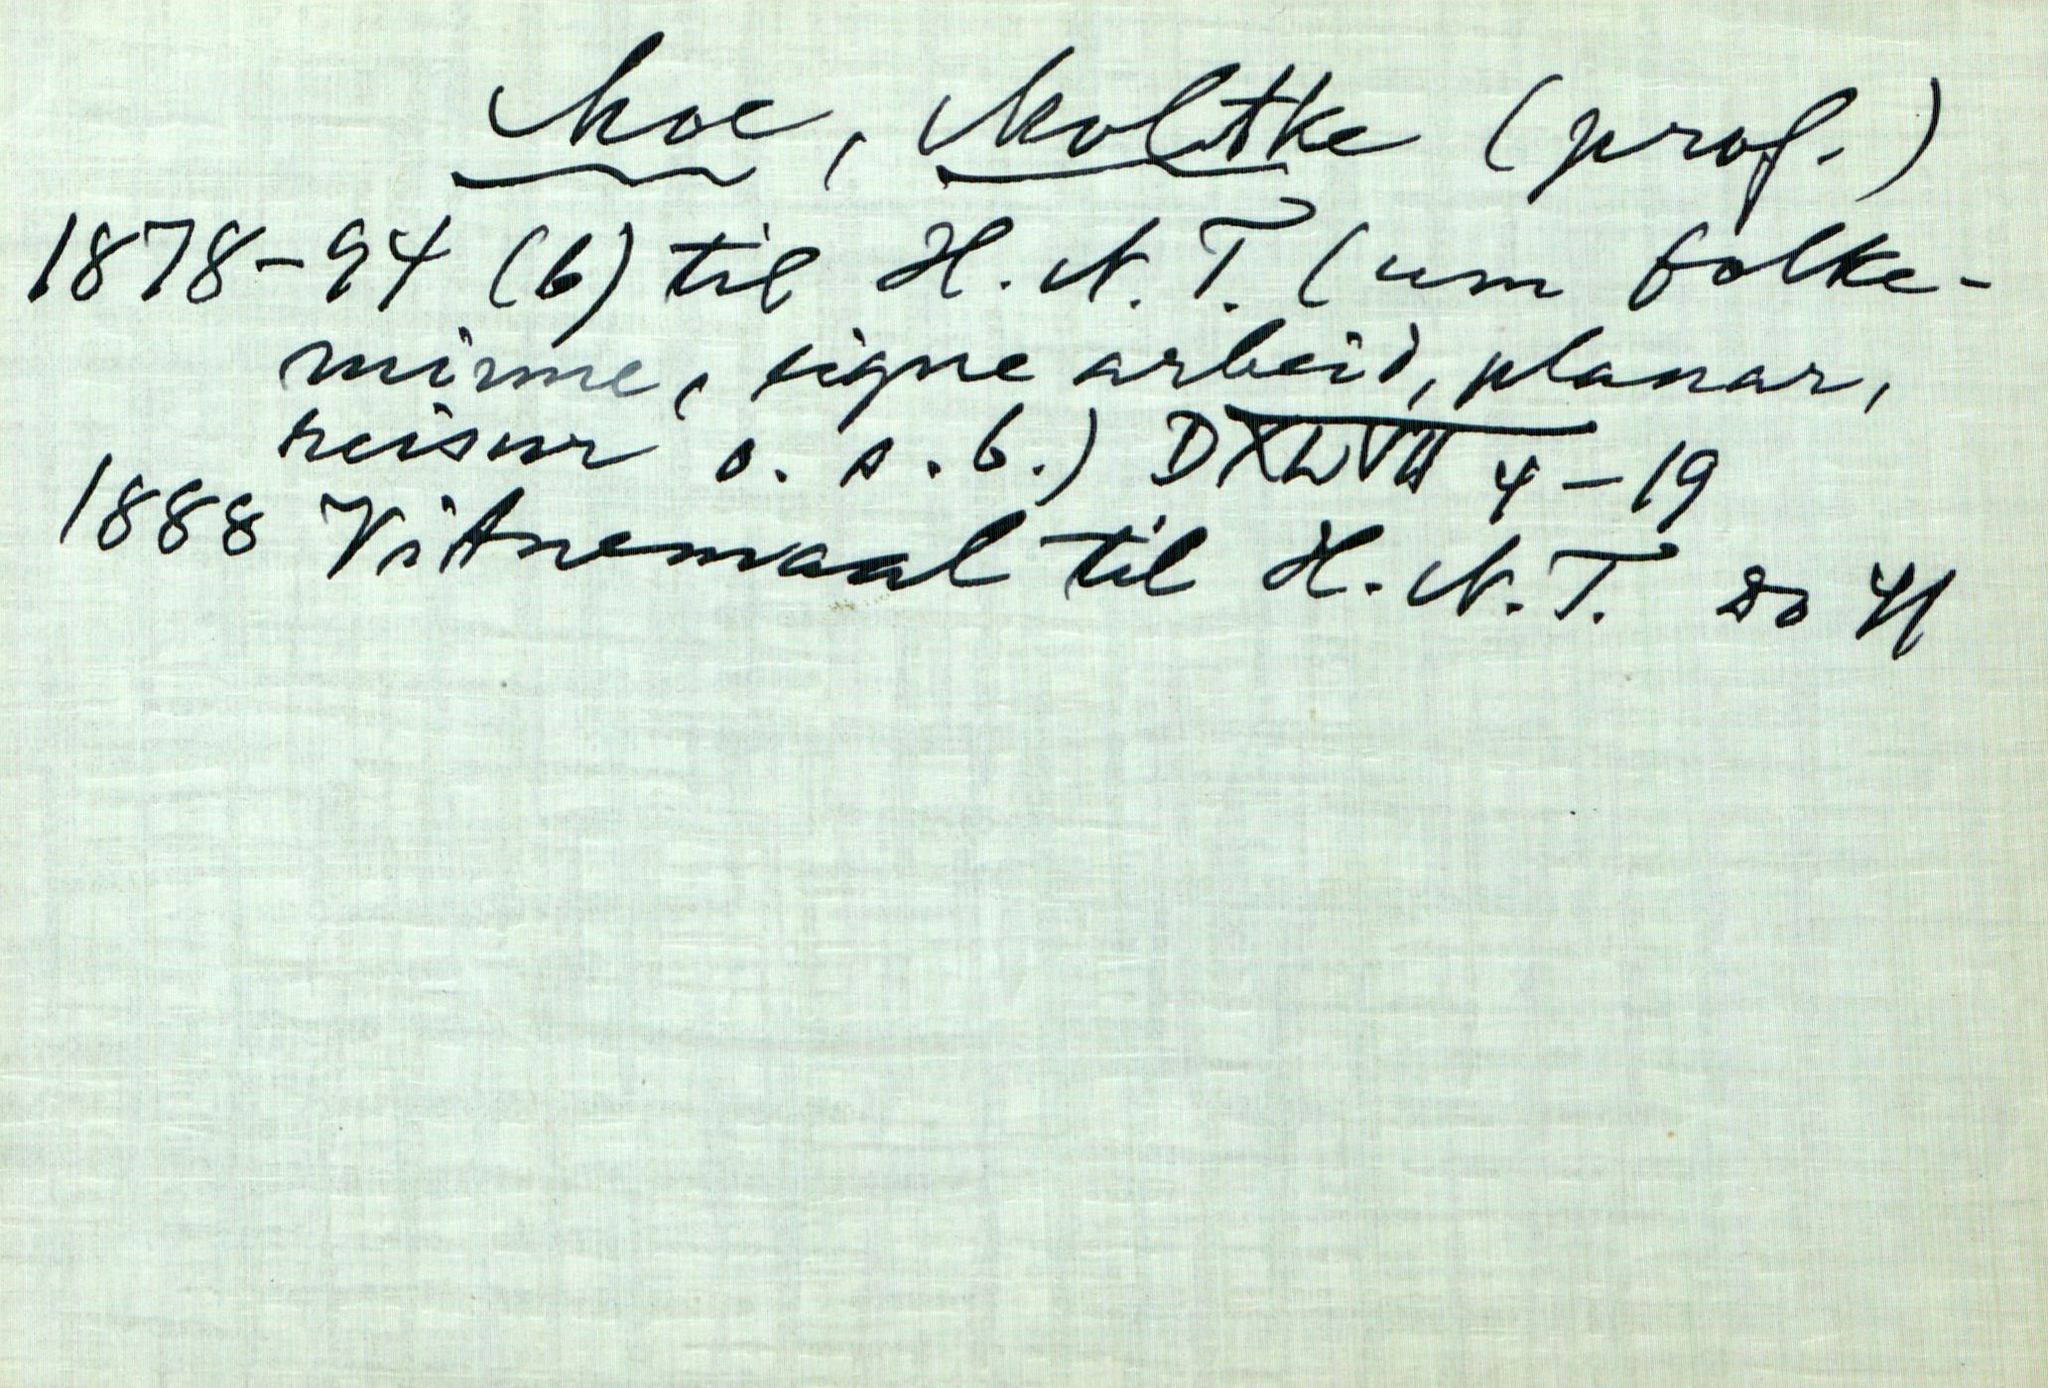 Moe, Moltke (prof.)
1878-94 (6) til H. N. T. (um folke-
minne, eigne arbeid, planar,
reisur o. s. b.) D XLVII 4-19
1888 Vitnemaal til H. N. T. 80 41